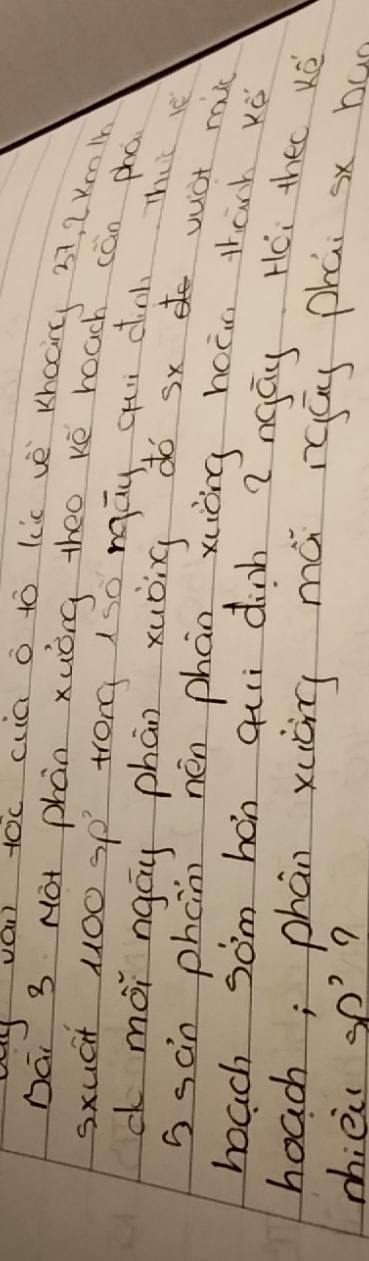 vận tốc của ô tô lúc về khoảng 37,2 km/h
Bài 3 Một phân xưởng theo kế hoạch cần phải
sxuất 1100 sp' trong 1 số ngày qui định. Thực tế
do mỗi ngày phân xưởng đó sx vượt mức
5 sản phẩm nên phân xưởng hoàn thành kế
hoạch sớm hơn qui định 2 ngày. Hỏi theo kế
hoạch, phân xưởng mỗi ngày phải sx bao
nhiêu sp' ?